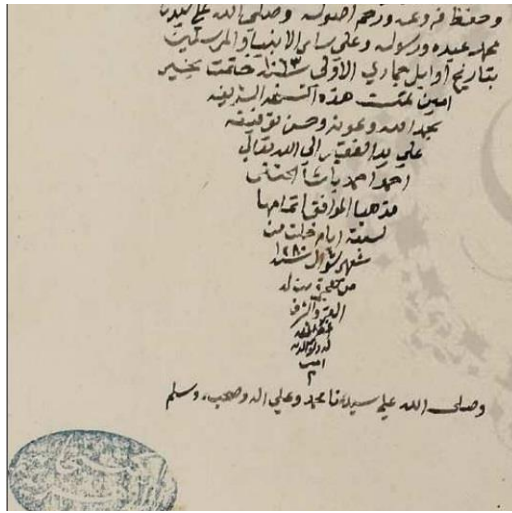 وحفظ فروعه ورحم اصوله وصلى الله على سيدنا
محمد عبده ورسوله وعلى ساير الانبيا والمرسلين
بتاريخ اوايل جمادي الاولى سنة ١٠٦٣ ختمت بخير
امين تمت هذه النسخه الشريفه
بحمد الله وعونه وحسن توفيقه
علي يد الفقير الى الله تعالى
احمد احمد باشا الحنفي
مذهبا الموافق اتمامها
لسبعة ايام خلت من
شهر شوال سنة ١٢٨٠
من هجرة من له
العز والشرف
غفر الله
له ولوالديه
امين
م
وصلى الله على سيدنا محمد وعلى اله وصحبه وسلم